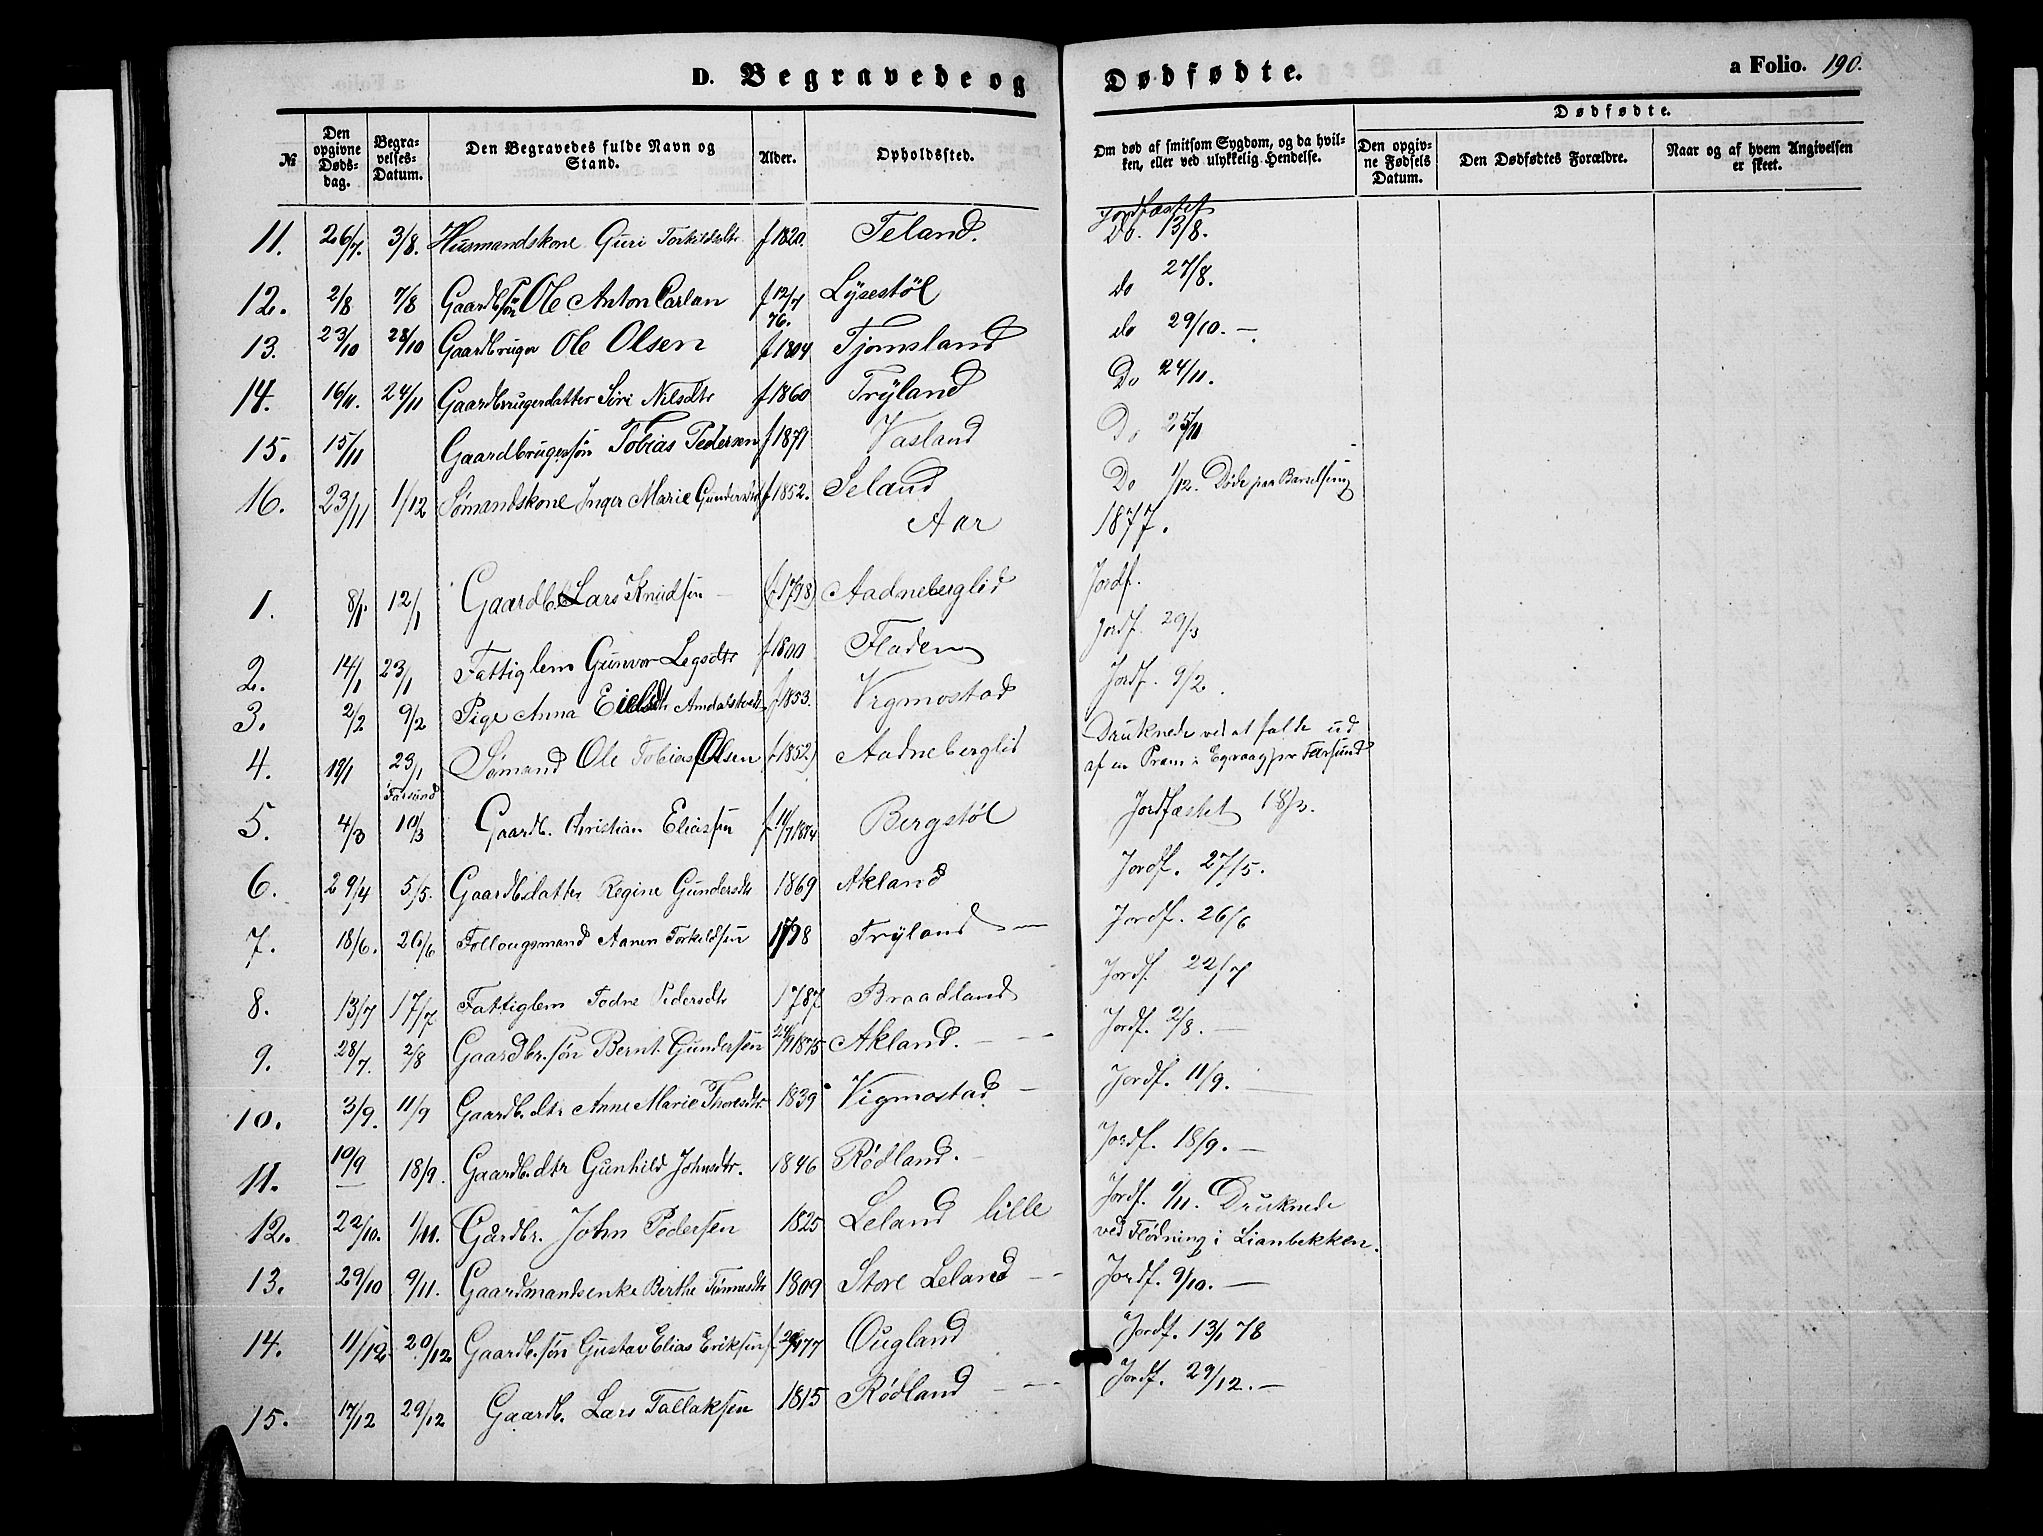 D. Begravede og Dødfødte. a Folio. 190.
№ Den opgivne Døds-dag. Begra-velses-Datum. Den Begravedes fulde Navn og Stand. Alder. Opholdssted. Om død af smitsom Sygdom, og da hvil-ken, eller ved ulykkelig Hendelse. Dødfødte. Den opgiv-ne Fødsels Datum. Den Dødfødtes Forældre. Naar og af hvem Angivelsen er skeet.
Jordfæstet
11. 26/7. 3/8. Husmandskone Guri Torkildsdtr f 1820. Teland. Do. 13/8.
12. 2/8 7/8 Gaardbr søn Ole Anton Carlan f 12/7 76. Lysestøl do 27/8.
13. 23/10 28/10 Gaardbruger Ole Olsen f 1804 Tjomsland do 29/10. —
14. 16/11. 24/11 Gaardbrugerdatter Siri Nilsdtr f 1860 Tryland Do 24/11.
15. 15/11 Gaardbrugersøn Tobias Pedersen f 1871 Vasland Do 25/11
16. 23/11 1/12 Sømandskone Inger Marie Gundersdtr f 1852. Seland Do 1/12. Døde paa Barselseng
Aar 1877.
1. 8/1. 12/1 Gaardb. Lars Knudsen (f 1798) Aadneberglid Jordf.
2. 14/1 23/1 Fattiglem Gunvor Legsdtr f 1800 Fladen Jordf. 29/3
3. 2/2 9/2 Pige Anna Amdalstvedt f 1853. Vigmostad Jordf. 9/2.
4. 19/1 23/1 Farsund Sømand Ole Tobias Olsen (f 1852) Aadneberglid Druknede ved at falde ud
af en Pram i Egvaag pr Farsund
5. 4/3 10/3 Gaardb. Christian Eliassen f 11/7 1874 Bergstøl Jordfæstet 18/3.
6. 29/4 5/5. Gaardb.datter Regine Gundersdtr 1869 Akland Jordf. 27/5.
7. 18/6. 26/6 Follougsmand Aanen Torkildsen 1798 Tryland — Jordf. 26/6
8. 13/7 17/7 Fattiglem Todne Pedersdtr 1787 Braadland Jordf. 22/7
9. 28/7. 2/8 Gaardbr. søn Bernt Gundersen 24/9 1875 Akland. — Jordf. 2/8. —
10. 3/9. 11/9 Gaardb. dtr Anne Marie Thoresdtr 1839 Vigmostad — Jordf. 11/9. —
11. 10/9 18/9. Gaardb. dtr Gunhild Johnsdtr. 1846 Rødland. — Jordf. 18/9. —
12. 22/10. 1/11. Gårdbr. John Pedersen 1825 Leland lille Jordf. 1/11. Druknede
ved Flødning i Lianbekken.
13. 29/10 9/11. Gaardmandsenke Berthe Tønnesdtr 1809 Store Leland — Jordf. 9/10. —
14. 11/12 20/12 Gaardb. søn Gustav Elias Eriksen f 77 Ougland Jordf. 13/1 78
15. 17/12 29/12 Gaardb. Lars Tallaksen 1815 Rødland — Jordf. 29/12. —